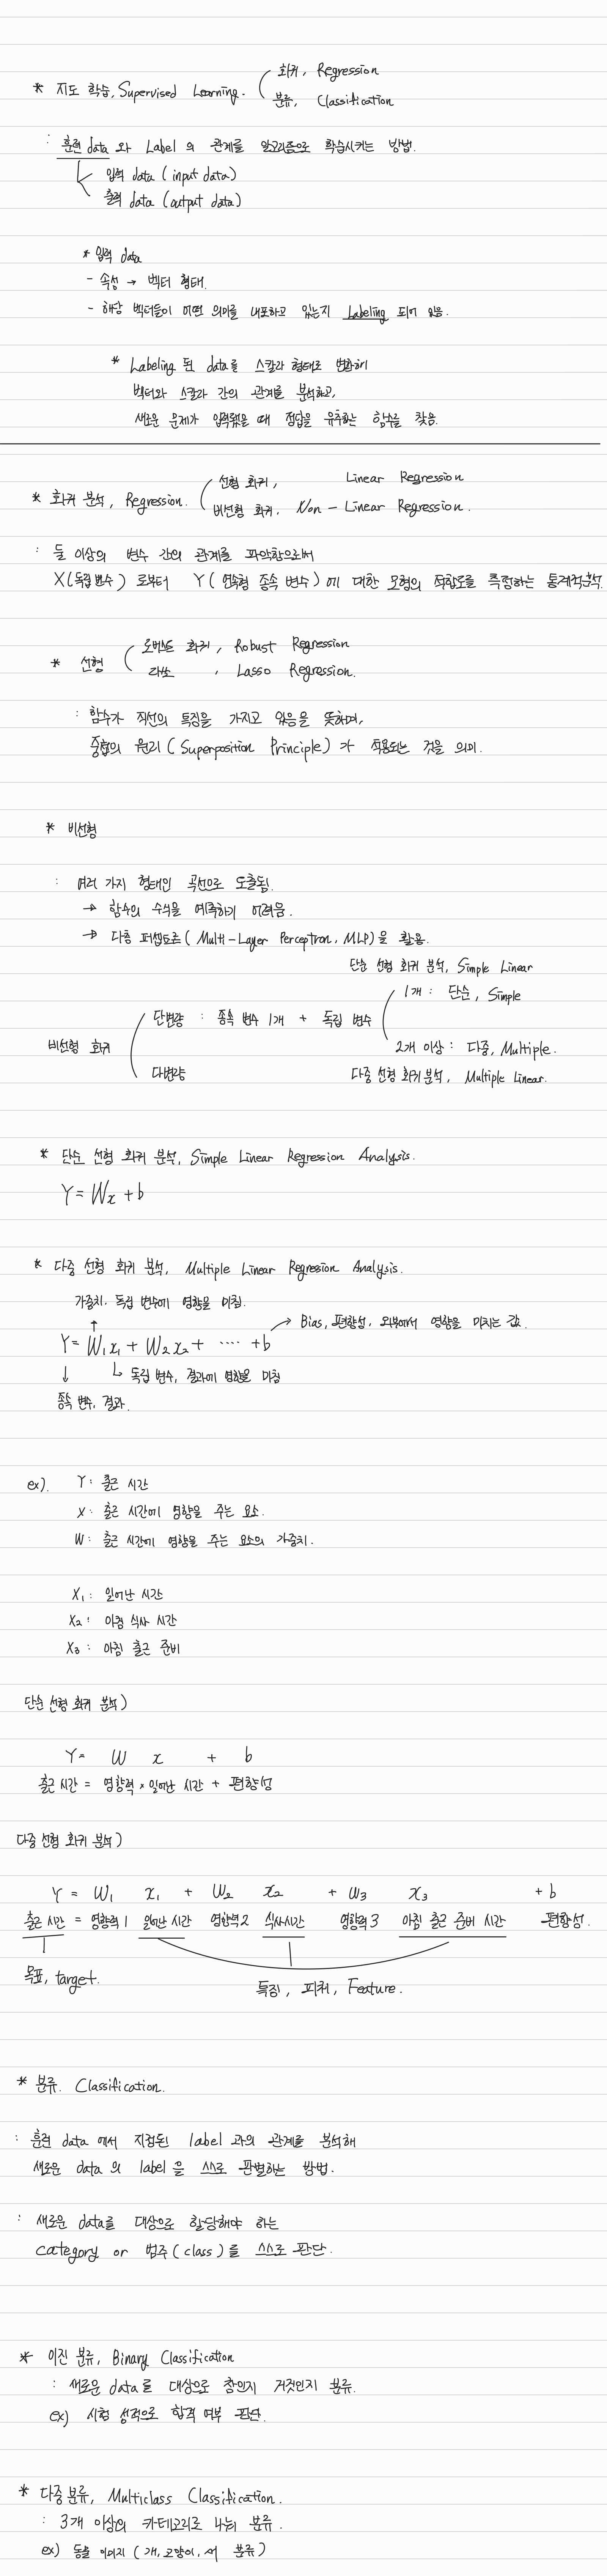 * 지도 학습, Supervised Learning.
회귀, Regression
분류, Classification
: 훈련 data 와 Label 의 관계를 알고리즘으로 학습시키는 방법.
입력 data (input data)
출력 data (output data)
* 입력 data
- 속성 → 벡터 형태.
- 해당 벡터들이 어떤 의미를 내포하고 있는지 Labeling 되어 있음.
* Labeling 된 data를 스칼라 형태로 변환하여
벡터와 스칼라 간의 관계를 분석하고,
새로운 문제가 입력됐을 때 정답을 유추하는 함수를 찾음.
* 회귀 분석, Regression.
선형 회귀, Linear Regression
비선형 회귀, Non - Linear Regression.
: 둘 이상의 변수 간의 관계를 파악함으로써
X(독립 변수) 로부터 Y( 연속형 종속 변수) 에 대한 모형의 적합도를 측정하는 통계적분석.
* 선형
로버스트 회귀, Robust Regression
라쏘 , Lasso Regression.
: 함수가 직선의 특징을 가지고 있음을 뜻하며,
중첩의 원리 ( Superposition Principle) 가 적용되는 것을 의미.
* 비선형
: 여러 가지 형태인 곡선으로 도출됨.
→ 함수의 수식을 예측하기 어려움.
→ 다층 퍼셉트론( Multi-Layer Perceptron, MLP)을 활용.
단순 선형 회귀 분석, Simple Linear
1개 : 단순, Simple
비선형 회귀
단변량 : 종속 변수 1개 + 독립 변수
2개 이상 : 다중, Multiple.
다변량
다중 선형 회귀 분석, Multiple Linear.
* 단순 선형 회귀 분석, Simple Linear Regression Analysis.
Y = Wx + b
* 다중 선형 회귀 분석, Multiple Linear Regression Analysis.
가중치, 독립 변수에 영향을 미침.
↑ → Bias, 편향성, 외부에서 영향을 미치는 값.
Y = W₁x₁ + W₂x₂ + ···· + b
↓ ↳ 독립 변수, 결과에 영향을 미침
종속 변수, 결과.
ex). Y : 출근 시간
X : 출근 시간에 영향을 주는 요소.
W : 출근 시간에 영향을 주는 요소의 가중치.
X₁ : 일어난 시간
X₂ : 아침 식사 시간
X₃ : 아침 출근 준비
단순 선형 회귀 분석)
Y = W x + b
출근 시간 = 영향력 × 일어난 시간 + 편향성
다중 선형 회귀 분석)
Y = W₁ x₁ + W₂ x₂ + W₃ x₃ + b
출근 시간 = 영향력 1 일어난 시간 영향력 2 식사시간 영향력 3 아침 출근 준비 시간 편향성.
목표, target.
특징, 피처, Feature.
* 분류. Classification.
: 훈련 data 에서 지정된 label 과의 관계를 분석해
새로운 data 의 label 을 스스로 판별하는 방법.
: 새로운 data를 대상으로 할당해야 하는
category or 범주 ( class ) 를 스스로 판단.
* 이진 분류, Binary Classification
: 새로운 data 를 대상으로 참인지 거짓인지 분류.
ex) 시험 성적으로 합격 여부 판단.
* 다중 분류, Multiclass Classification.
: 3개 이상의 카테고리로 나눠 분류.
ex) 동물 이미지 ( 개, 고양이, 새 분류 )